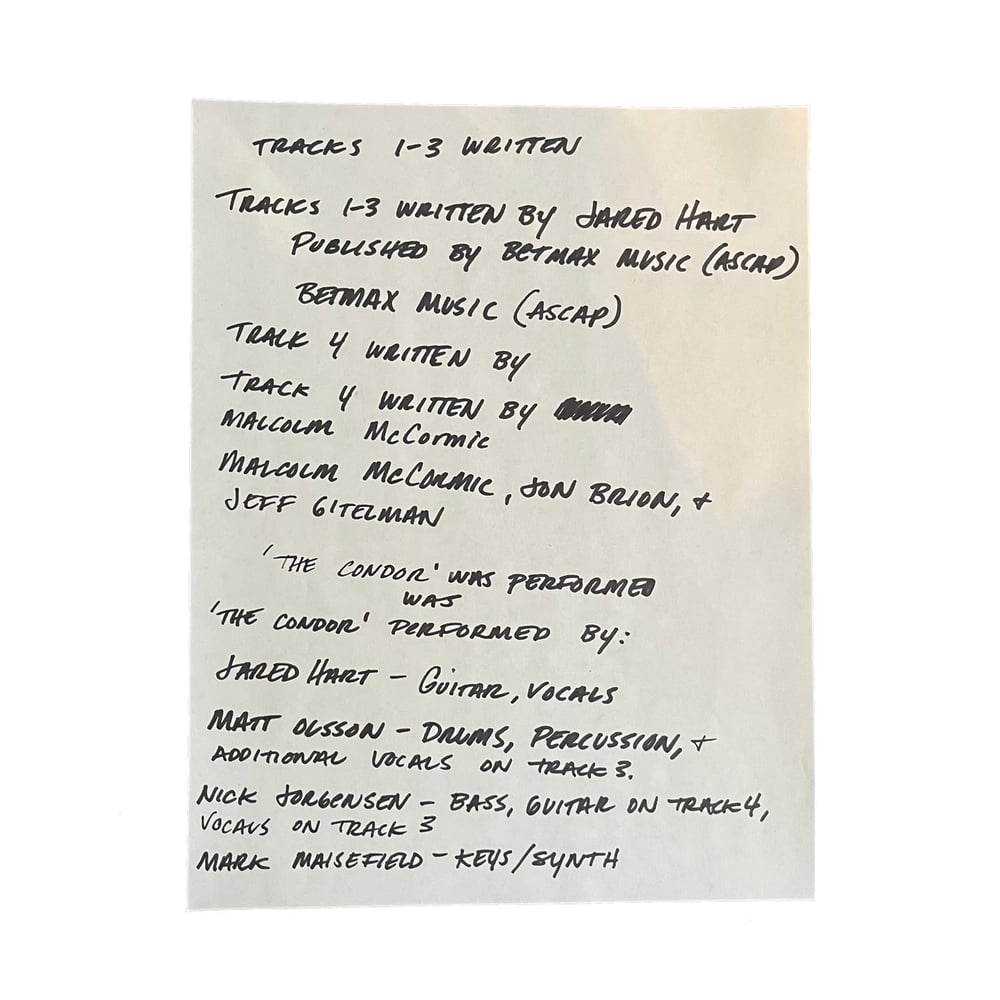 TRACKS 1-3 WRITTEN
TRACKS 1-3 WRITTEN BY JARED HART
PUBLISHED BY BETMAX MUSIC (ASCAP)
BETMAX MUSIC (ASCAP)
TRACK 4 WRITTEN BY
TRACK 4 WRITTEN BY
MALCOLM McCormic
MALCOLM McCORMIC, JON BRION, +
JEFF GITELMAN
'THE CONDOR' WAS PERFORMED
WAS
'THE CONDOR' PERFORMED BY:
JARED HART - GUITAR, VOCALS
MATT OLSSON - DRUMS, PERCUSSION, +
ADDITIONAL VOCALS ON TRACK 3.
NICK JORGENSEN - BASS, GUITAR ON TRACK 4,
VOCALS ON TRACK 3
MARK MAISEFIELD - KEYS/SYNTH